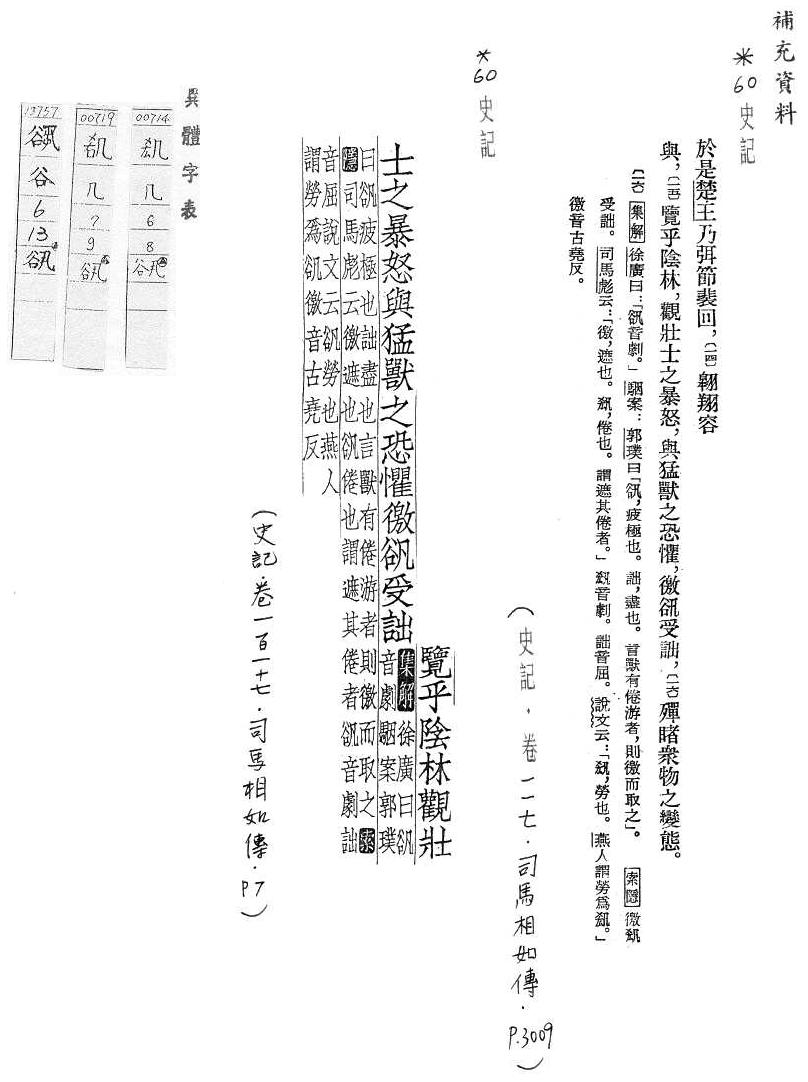 補充資料
*60 史記
於是楚王乃弭節裴回,〔一四〕翱翔容
與,〔一五〕覽乎陰林,觀壯士之暴怒,與猛獸之恐懼,徼谻受詘,〔一六〕殫睹衆物之變態。
〔一六〕集解徐廣曰:「谻音劇。」駰案:郭璞曰「谻,疲極也。詘,盡也。言獸有倦游者,則徼而取之」。 索隱徼谻
受詘。司馬彪云:「徼,遮也。谻,倦也。謂遮其倦者。」谻音劇。詘音屈。說文云:「谻,勞也。燕人謂勞為谻。」
徼音古堯反。
(史記.卷一一七.司馬相如傳.P.3009)
*60 史記
覽乎陰林觀壯
士之暴怒與猛獸之恐懼徼谻受詘
集解徐廣曰谻
音劇駰案郭璞
曰谻疲極也詘盡也言獸有倦游者則徼而取之索
隱司馬彪云徼遮也谻倦也謂遮其倦者谻音劇詘
音屈說文云谻勞也燕人
謂勞為谻徼音古堯反
(史記.卷一百一十七.司馬相如傳.P7)
異體字表
00714
几
6
8
00719
几
7
9
13757
谷
6
13